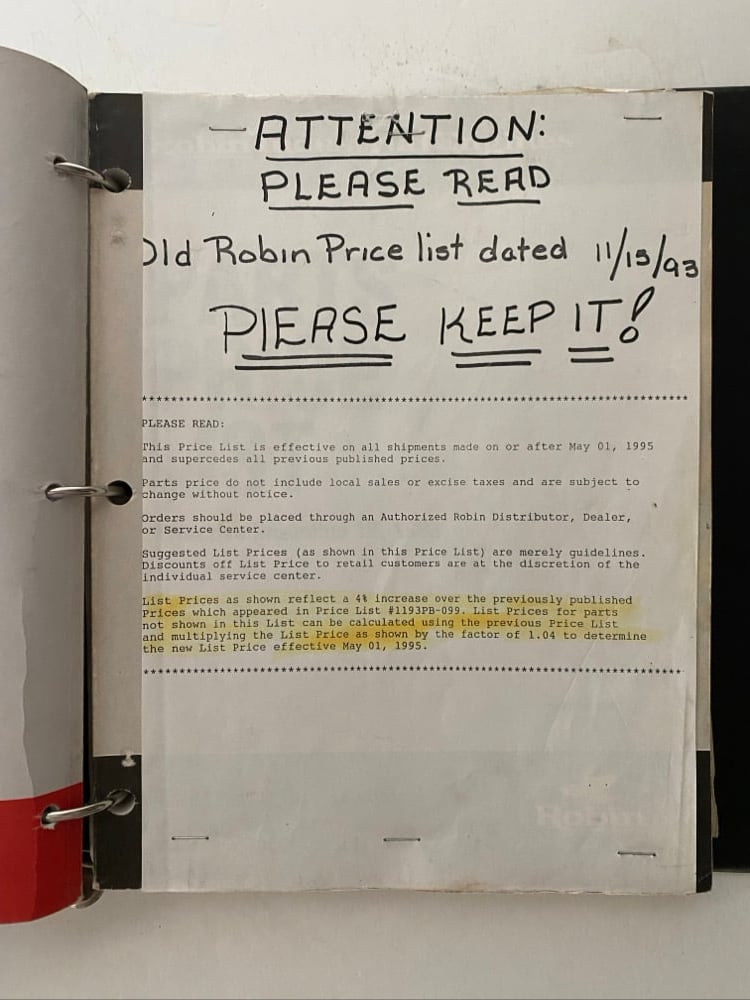 ATTENTION:
PLEASE READ
Old Robin Price list dated 11/15/93
PLEASE KEEP IT!
****************************************************************************************
PLEASE READ:
This Price List is effective on all shipments made on or after May 01, 1995
and supercedes all previous published prices.
Parts price do not include local sales or excise taxes and are subject to
change without notice.
Orders should be placed through an Authorized Robin Distributor, Dealer,
or Service Center.
Suggested List Prices (as shown in this Price List) are merely guidelines.
Discounts off List Price to retail customers are at the discretion of the
individual service center.
List Prices as shown reflect a 4% increase over the previously published
Prices which appeared in Price List #1193PB-099. List Prices for parts
not shown in this List can be calculated using the previous Price List
and multiplying the List Price as shown by the factor of 1.04 to determine
the new List Price effective May 01, 1995.
****************************************************************************************